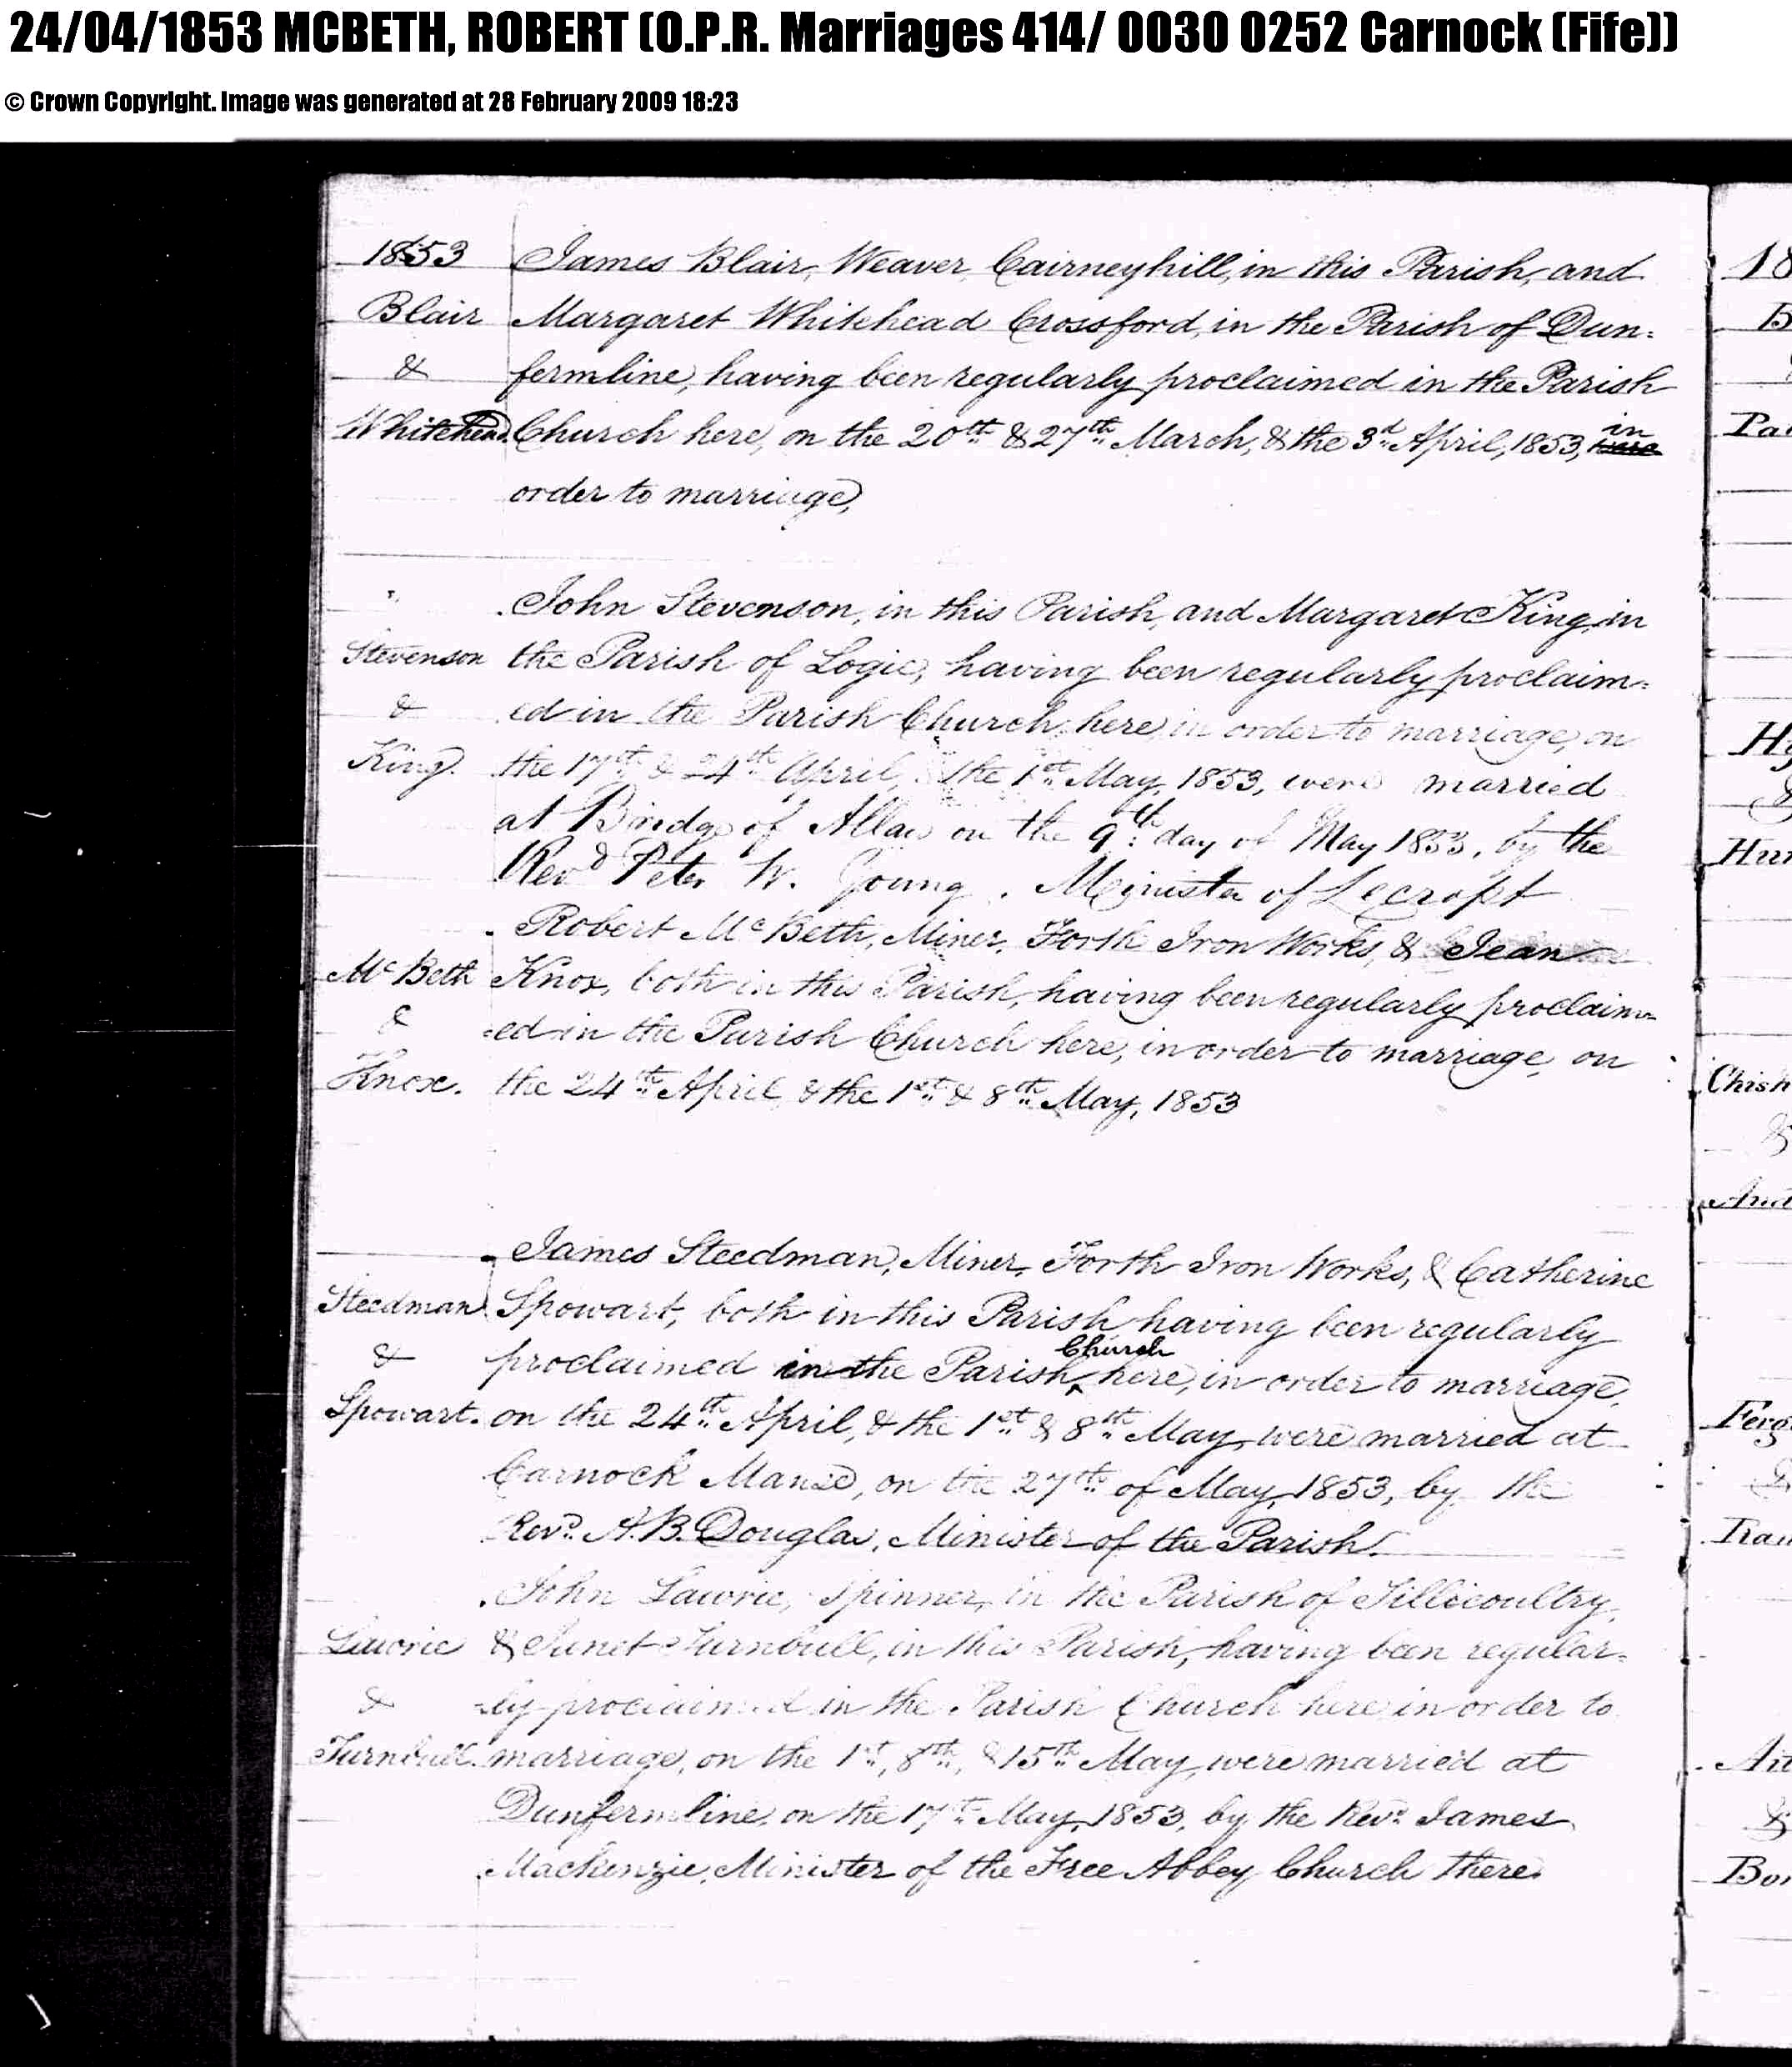 24/04/1853 MCBETH, ROBERT (O.P.R. Marriages 414/ 0030 0252 Carnock (Fife))
© Crown Copyright. Image was generated at 28 February 2009 18:23
1853 James Blair, Weaver, Cairneyhill, in this Parish, and
Blair Margaret Whitehead Crossford, in the Parish of Dun:
& fermline, having been regularly proclaimed in the Parish
Whitehead Church here, on the 20th & 27th March, & the 3d April, 1853, in
order to marriage,
John Stevenson, in this Parish, and Margaret King, in
Stevenson the Parish of Logie, having been regularly proclaim:
& ed in the Parish Church here, in order to marriage, on
King. the 17th & 24th April, the 1st May, 1853, were married
at Bridge of Allan on the 9th day of May 1853, by the
Revd Peter W. Young, Minister of Lecropt
Robert McBeth, Miner, Forth Iron Works, & Jean
McBeth Knox, both in this Parish, having been regularly proclaim-
& -ed in the Parish Church here, in order to marriage, on
Knox. the 24th April, & the 1st & 8th May, 1853
James Steedman, Miner, Forth Iron Works, & Catherine
Steedman Spowart, both in this Parish having been regularly
& proclaimed in the Parish Church here, in order to marriage,
Spowart. on the 24th April, & the 1st & 8th May, were married at
Carnock Manse, on the 27th of May, 1853, by the
Revd. A.B. Douglas, Minister of the Parish.
John Lawrie, Spinner, in the Parish of Tillicoultry,
Lawrie & Janet Turnbull, in this Parish, having been regular-
& -ly proclaimed in the Parish Church here in order to
Turnbull. marriage, on the 1st, 8th, & 15th May, were married at
Dunfermline, on the 17th May, 1853, by the Revd. James
Mackenzie, Minister of the Free Abbey Church there.
18
B
Pa
H
&
Hun
Chish
&
And
Ferg
&
Ait
&
Bo